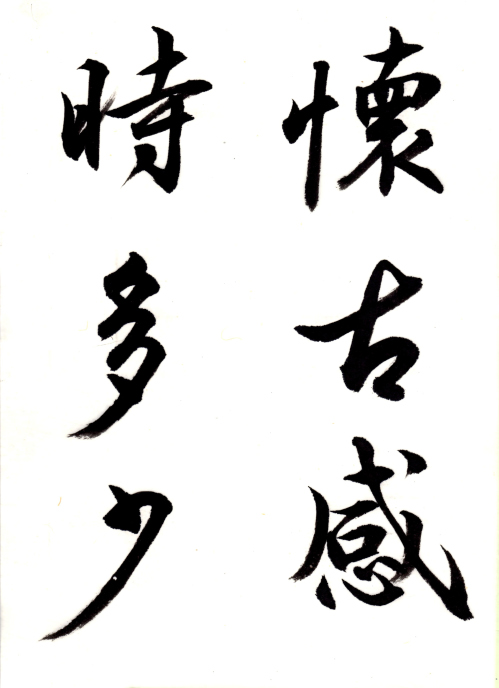 懷古感
時多少